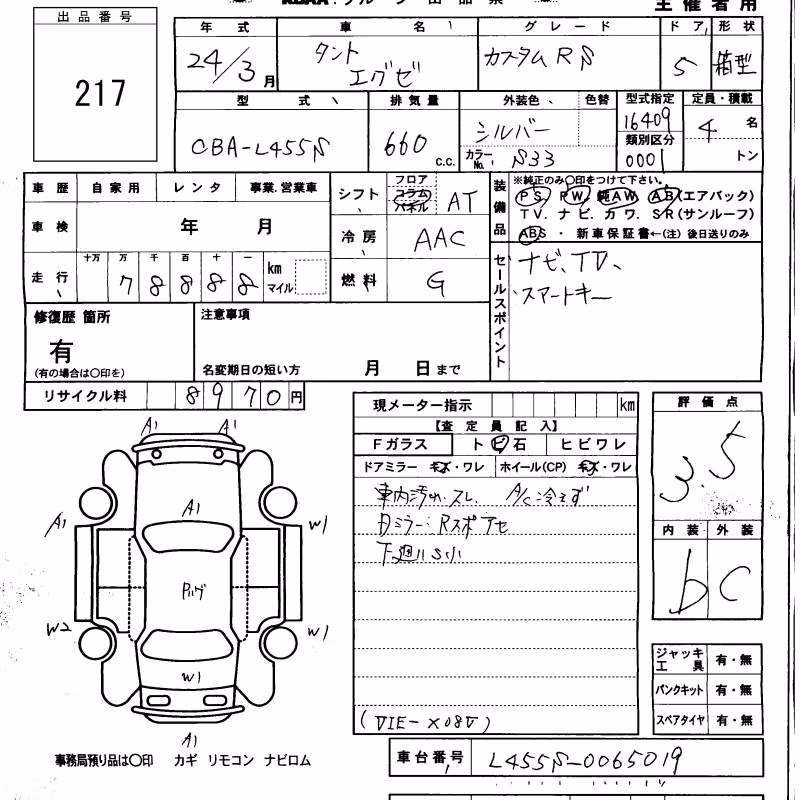 主催者用
出品番号
217
年式 車名 グレード ドア 形状
24/3月 タント エグゼ カスタムRS 5 箱型
型式 排気量 外装色 色替 型式指定 定員・積載
CBA-L455S 660 c.c. シルバー 16409 4 名
カラーNo. S33 類別区分 0001 トン
車歴 自家用 レンタ 事業.営業車
車検 年 月
走行 十万 万 千 百 十 一 km マイル
7 8 8 8 8
シフト フロア コラム パネル AT
冷房 AAC
燃料 G
装備品 ※純正のみ〇印をつけて下さい。
PS. PW. 純AW. AB(エアバック)
TV. ナビ. カワ. SR(サンルーフ)
ABS ・ 新車保証書←(注) 後日送りのみ
セールスポイント ナビ、TV、
スマートキー
修復歴 箇所 注意事項
有
(有の場合は〇印を) 名変期日の短い方 月 日まで
リサイクル料 8 9 7 0 円
現メーター指示 km
【査定員記入】
Fガラス トビ石 ヒビワレ
ドアミラー キズ・ワレ ホイール(CP) キズ・ワレ
車内汚れ・スレ、 A/C冷えず
Rスポアセ
下廻りS小
(VIE-X08V)
評価点
3.5
内装 外装
b C
ジャッキ工具 有・無
パンクキット 有・無
スペアタイヤ 有・無
A1 A1
A1
A1 W1
W2 W1
W1
A1
事務局預り品は〇印 カギ リモコン ナビロム
車台番号 L455S-0065019